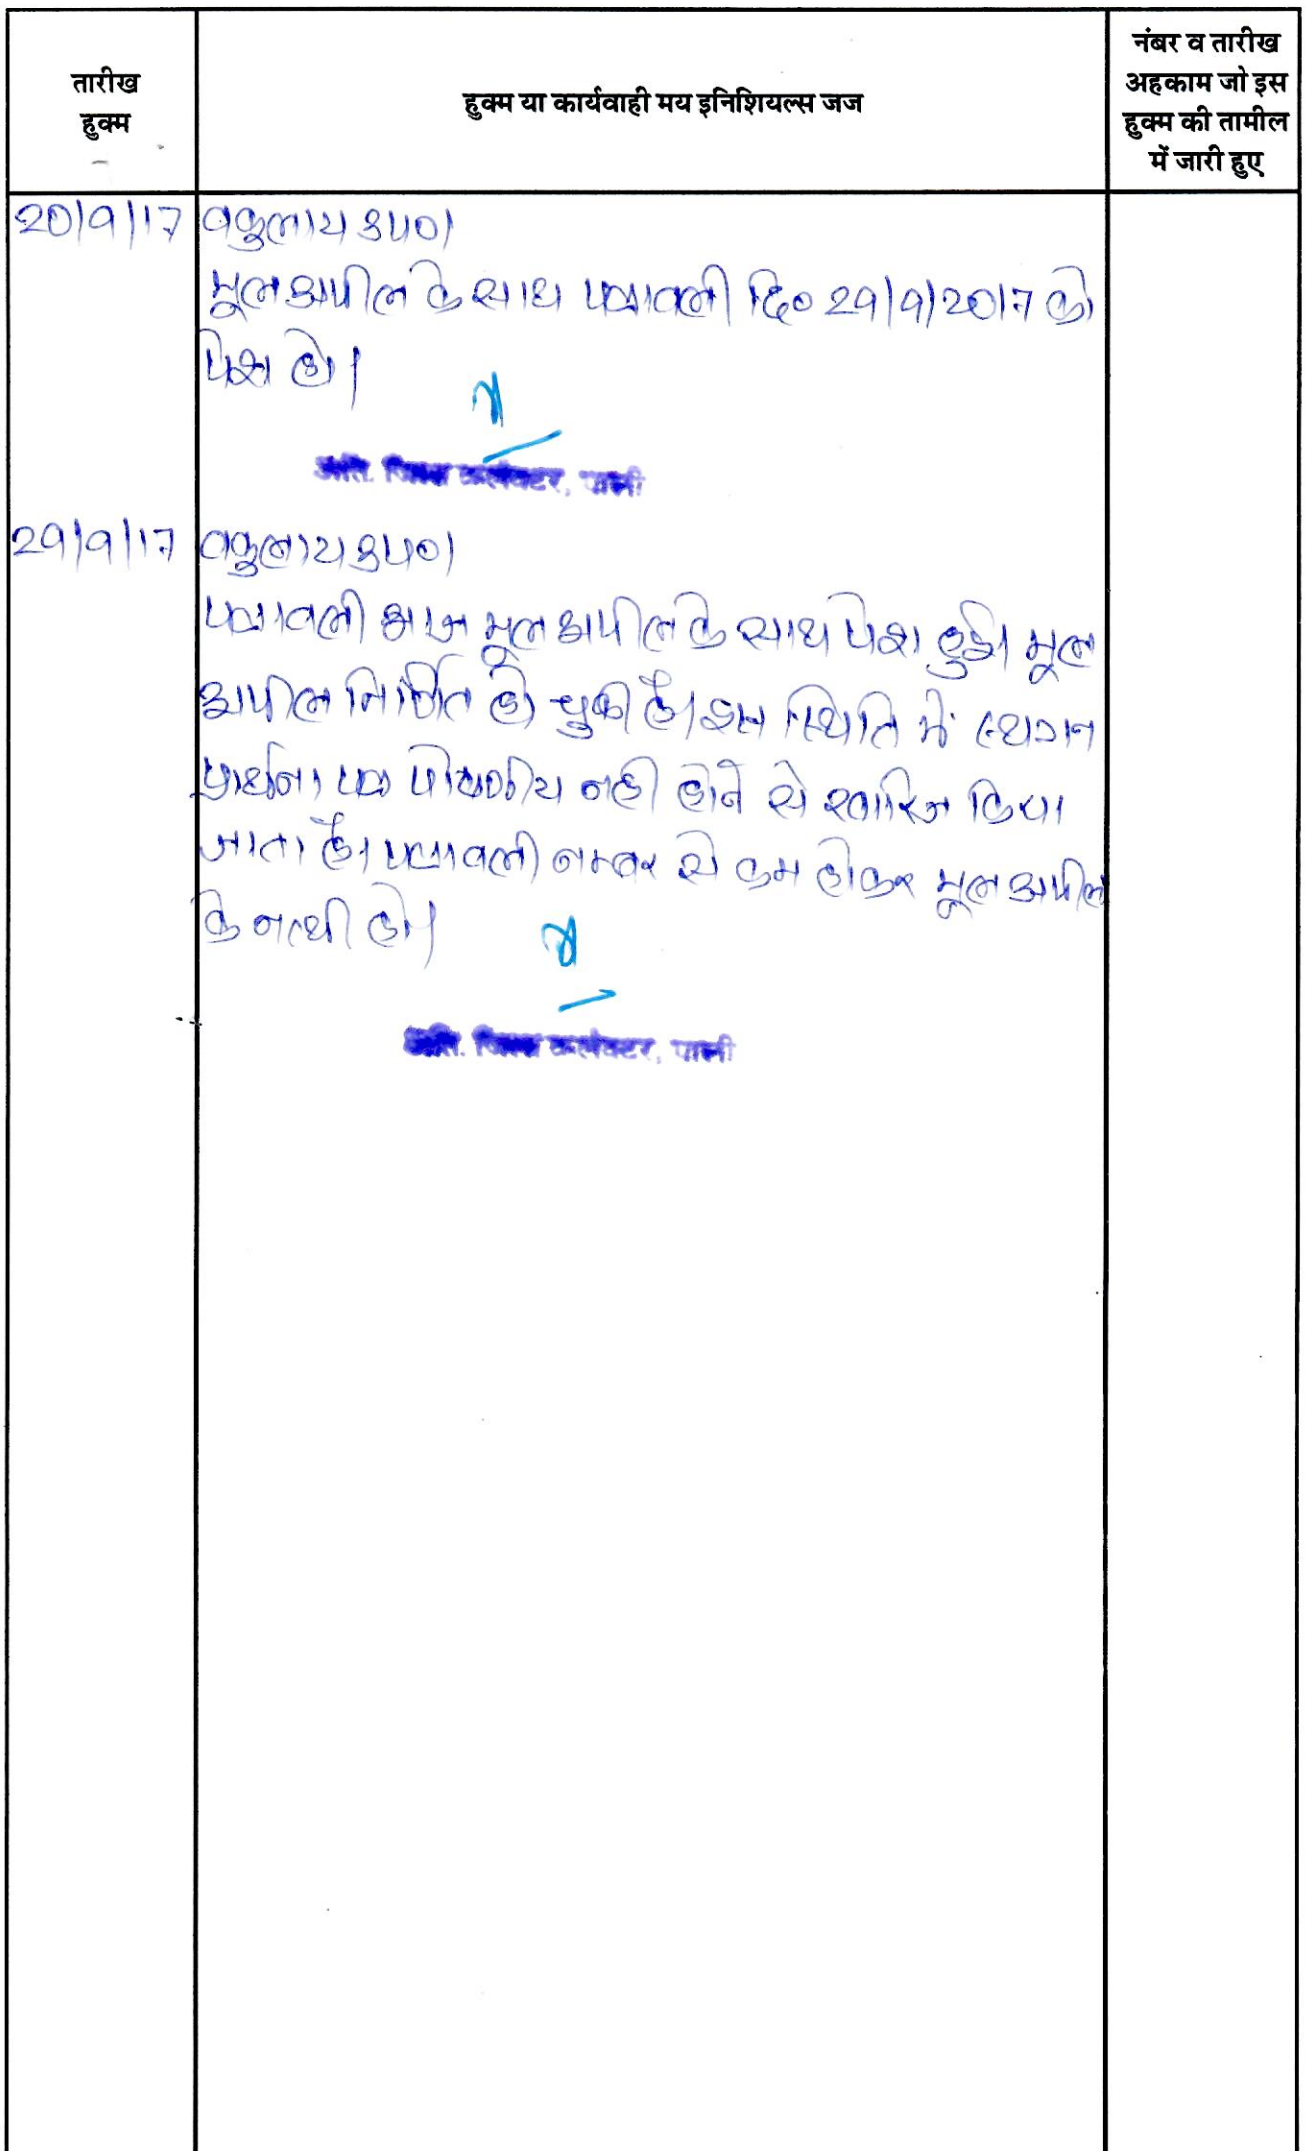 तारीख
हुक्म
हुक्म या कार्यवाही मय इनिशियल्स जज
नंबर व तारीख
अहकाम जो इस
हुक्म की तामील
में जारी हुए
20/9/17 वकुलाय उप०।
मूल अपील के साथ पत्रावली दि० 29/9/2017 को
पेश हो।
अति. जिला कलेक्टर, पाली
29/9/17 वकुलाय उप०।
पत्रावली आज मूल अपील के साथ पेश हुई। मूल
अपील निर्णित हो चुकी है। इस स्थिति में स्थगन
प्रार्थना पत्र पोषणीय नही होने से खारिज किया
जाता है। पत्रावली नम्बर से कम होकर मूल अपील
के नत्थी हो।
अति. जिला कलेक्टर, पाली